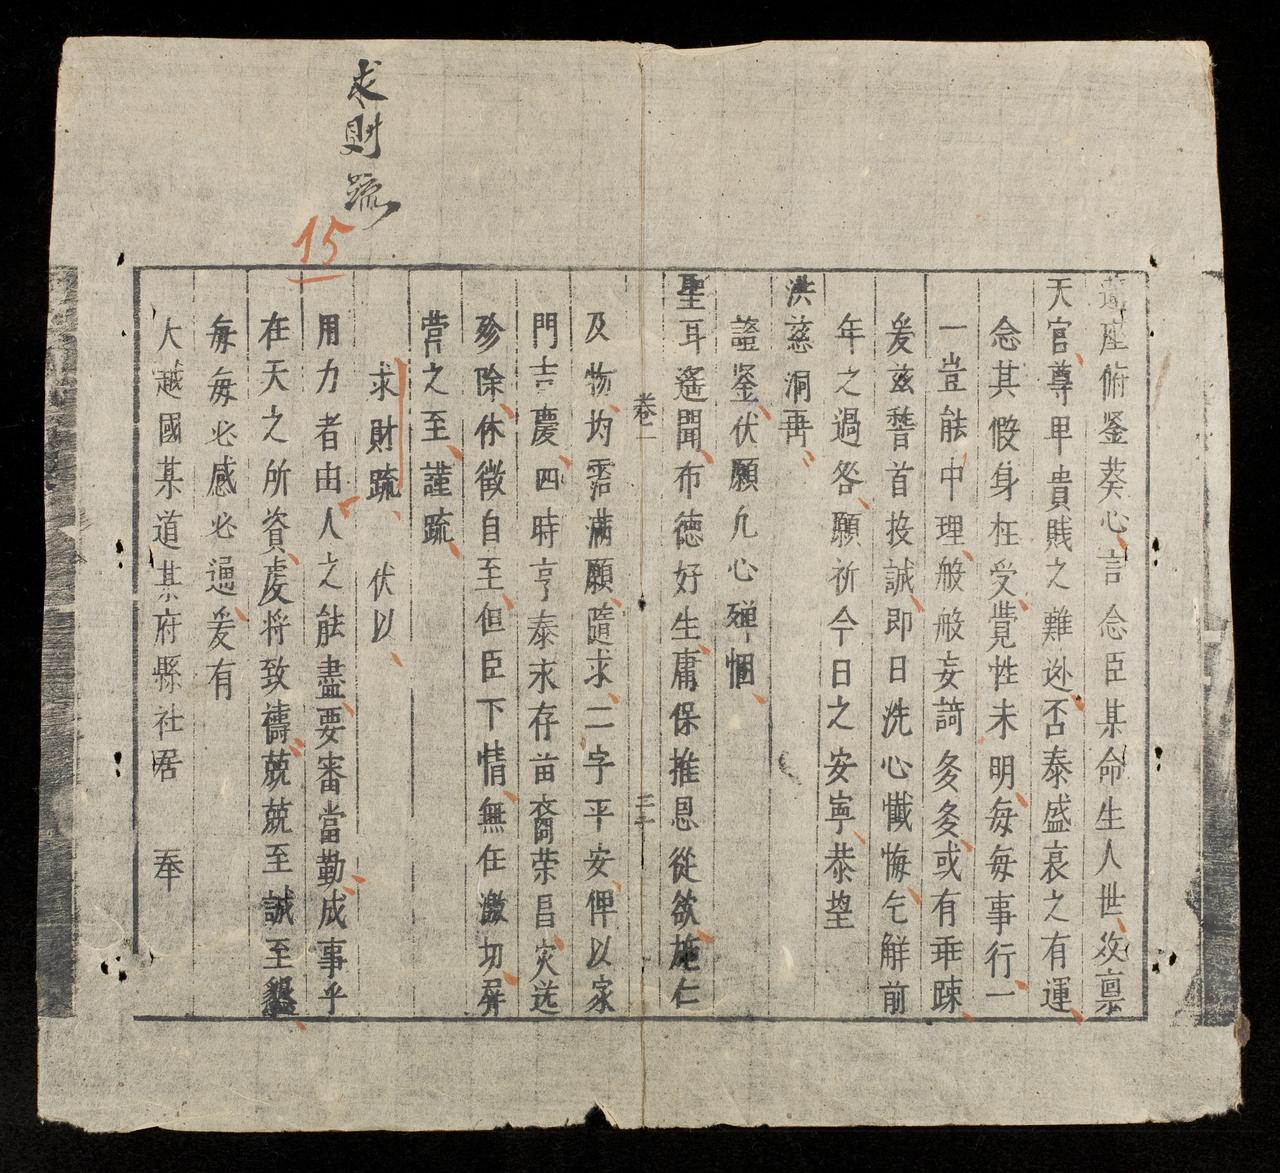 求財疏
15
蓮座俯鉴葵心言念臣某命生人世攸稟
天官尊卑貴賤之難迯否泰盛衰之有運
念其假身枉受覺性未明每每事行一
一豈能中理般般妄謟多多或有乖踈
爰兹瞽首投誠即日洗心懺悔乞觧前
年之過咎願祈今日之安寕恭望
洪慈洞再
證鉴伏願九心殫悃
聖耳遙聞布德好生庸保推恩從欲施仁
卷一
三十
及物均霑满願隨求二字平安俾以家
門吉慶四時亨泰末存苗裔荣昌灾迍
殄除休徵自至但臣下情無任激切屏
营之至謹疏
求財疏 伏以
用力者由人之能盡要審當勤成事乎
在天之所資虔将致禱兢兢至誠至懇
每每必感必通爰有
大越國某道某府縣社居 奉